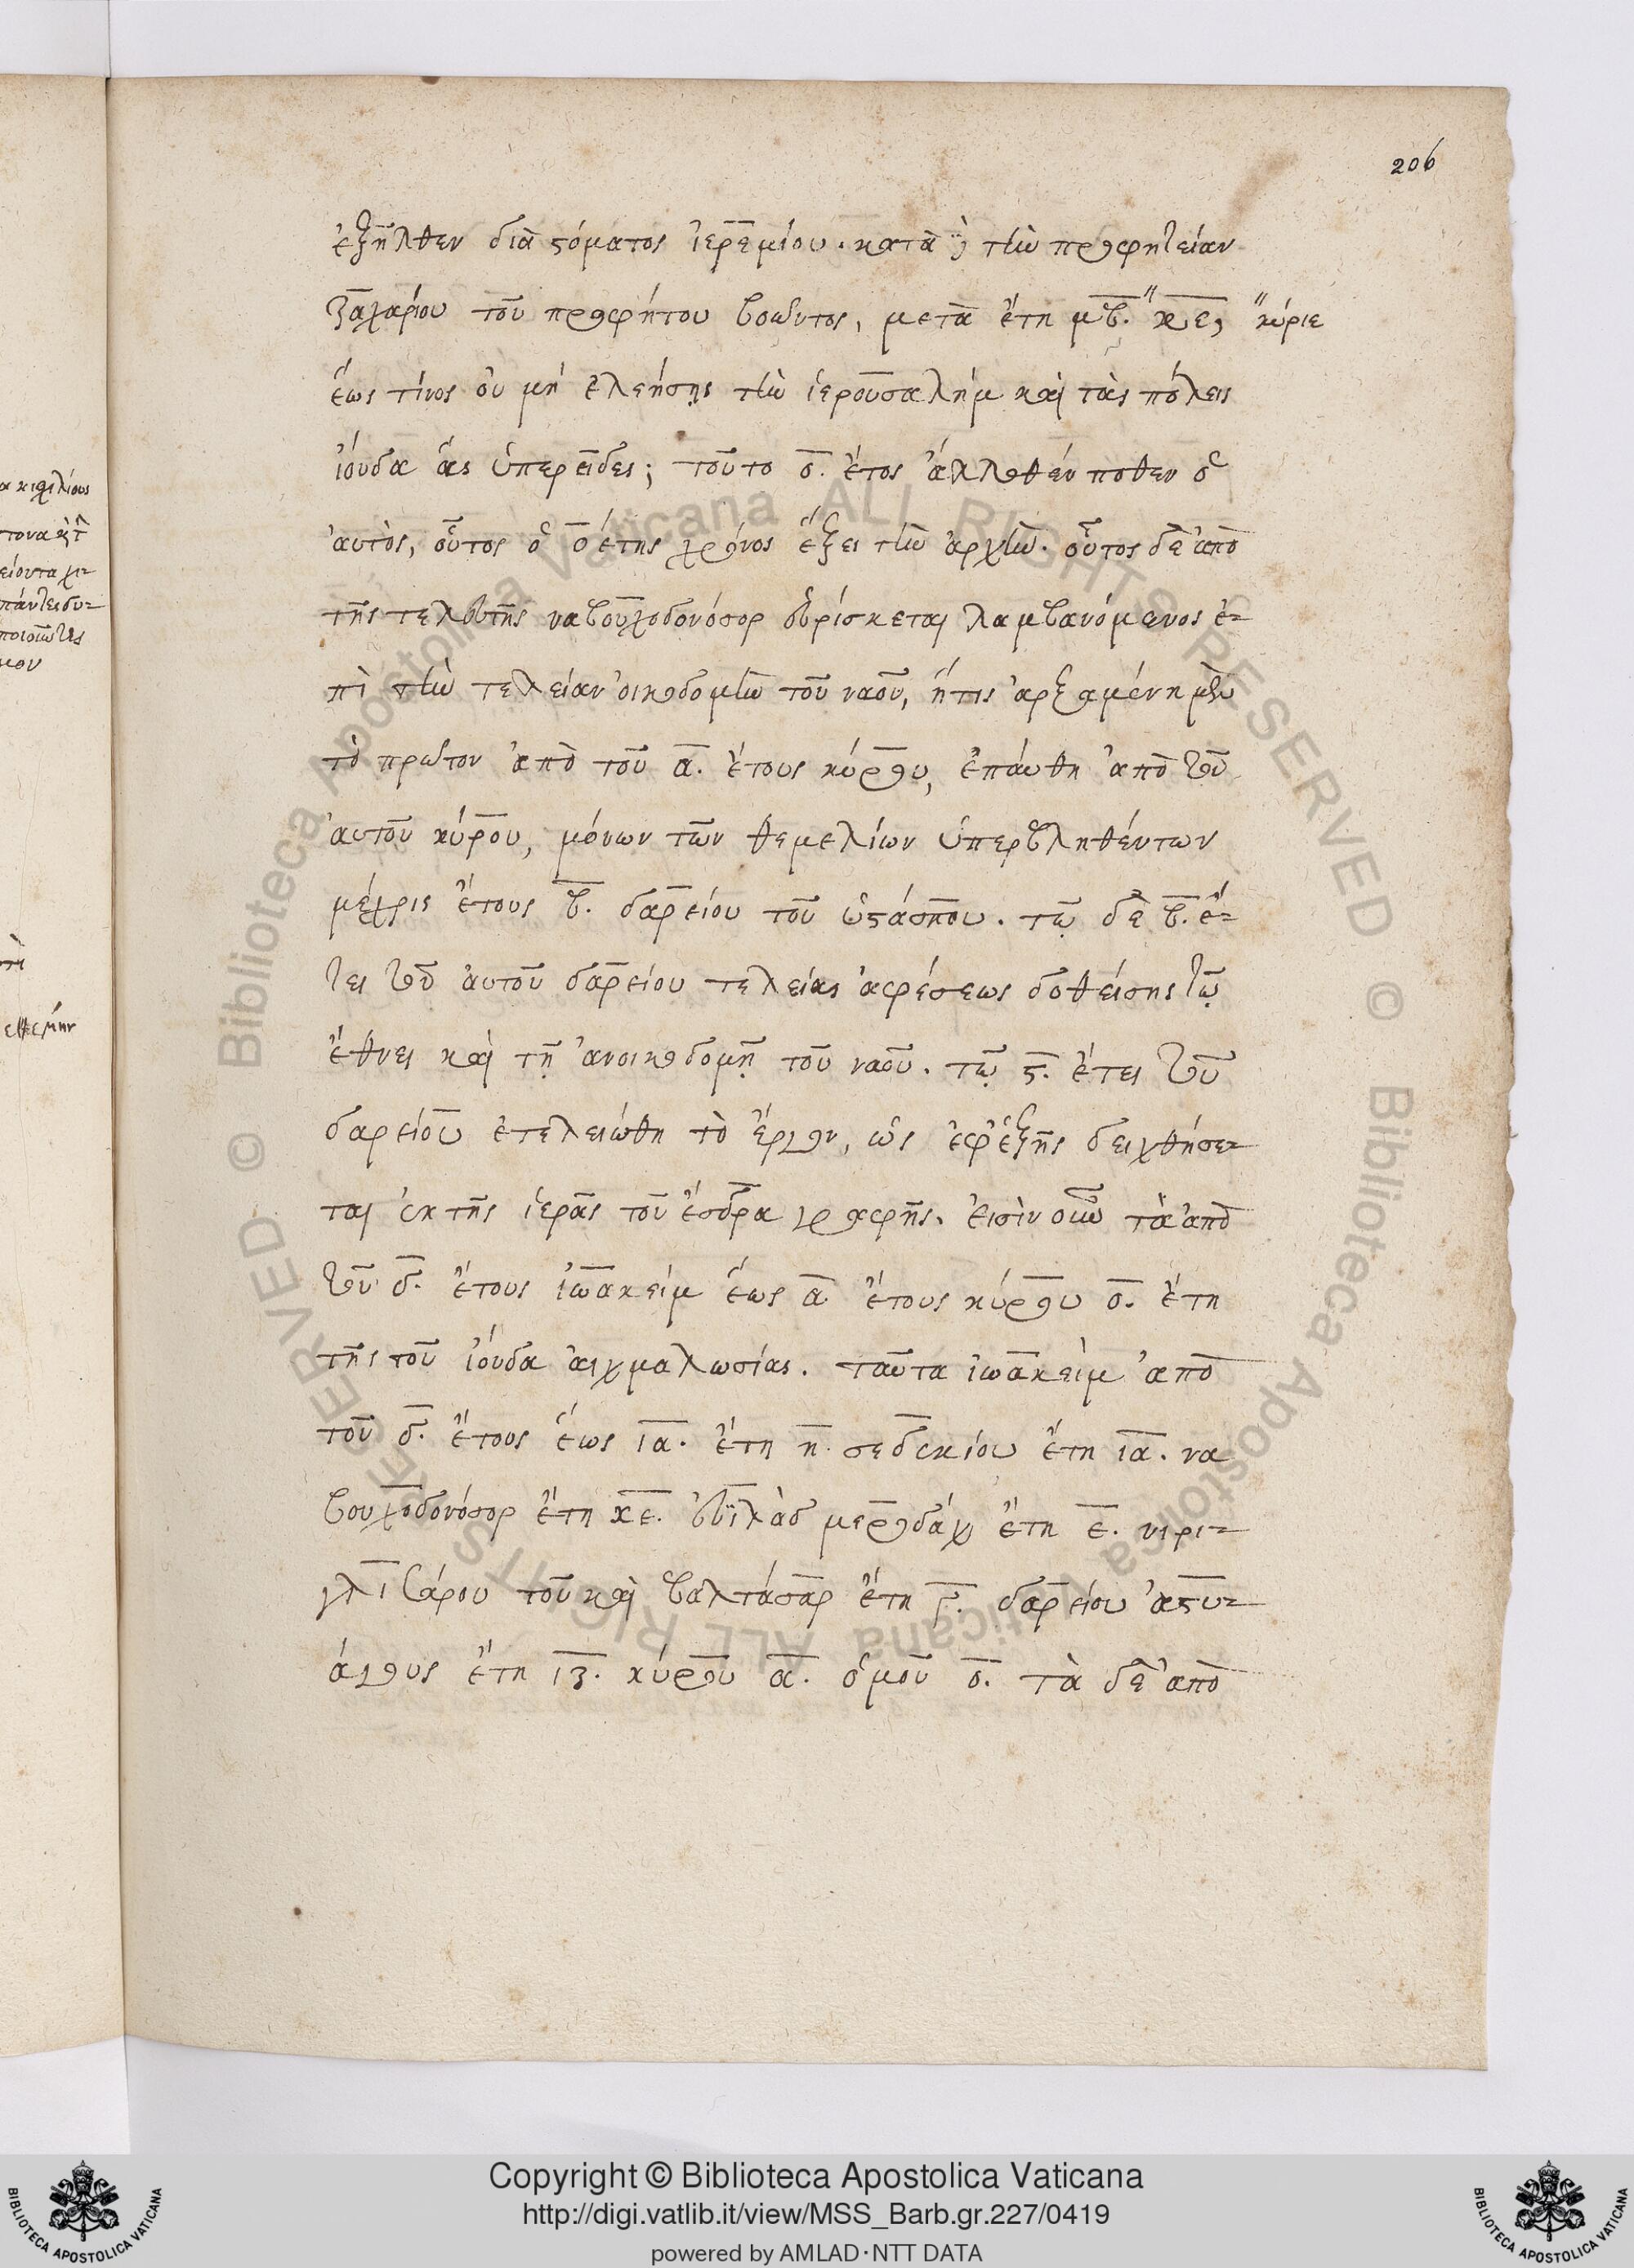 206
ἐξῆλθεν διὰ στόματος ἱερεμίου. κατὰ γ τὴν προφητείαν
ζαχαρίου τοῦ προφήτου βοῶντος, μετὰ ἔτη μβ. κε, κύριε
ἕως τίνος οὐ μή ἐλεήσῃς τὴν ἱερουσαλήμ καὶ τὰς πόλεις
ἰούδα ἁς ὑπερεῖδες; τοῦτο ο. ἔτος ἀλλοθέν ποθεν ὁ
αὐτὸς, οὗτος ὁ ο έτης χρόνος ἕξει τὴν ἀρχὴν. οὗτος δὲ ἀπὸ
τῆς τελευτῆς ναβουχοδονόσορ εὑρίσκεται λαμβανόμενος ἐ-
πὶ τὴν τελείαν οἰκοδομὴν τοῦ ναοῦ, ἥτις ἀρξαμένη μὲν
τὸ πρῶτον ἀπὸ τοῦ α. ἔτους κύρου, ἐπαύθη ἀπὸ τοῦ
αὐτοῦ κύρου, μόνων τῶν θεμελίων ὑπερβληθέντων
μέχρις ἔτους β. δαρείου τοῦ ὑστάσπου. τῷ δὲ β. ἔ-
τει τοῦ αὐτοῦ δαρείου τελείας ἀφέσεως δοθείσης τῷ
ἔθνει καὶ τῇ ἀνοικοδομῇ τοῦ ναοῦ. τῷ ϛ. ἔτει τοῦ
δαρείου ἐτελειώθη τὸ ἔργον, ὡς ἐφἑξῆς δειχθήσε-
ται ἐκ τῆς ἱερᾶς τοῦ ἔσδρα γραφῆς. εἰσὶν οὖν τὰ ἀπὸ
τοῦ δ. ἔτους ἰωακείμ ἕως α ἔτους κύρου ο. ἔτη
τῆς τοῦ ἰούδα αἰχμαλωσίας. ταῦτα ἰωακείμ ἀπὸ
τοῦ δ. ἔτους ἕως ια. ἔτη η. σεδεκίου ἔτη ια. να
βουχοδονόσορ ἔτη κε. εὐϊλὰδ μεροδάχ ἔτη ε. νιρι-
γλισάρου τοῦ καὶ βαλτάσαρ ἔτη γ. δαρείου ἀστυ-
άγους ἔτη ιζ. κύρου α. ὁμοῦ ο. τὰ δὲ ἀπὸ
Copyright © Biblioteca Apostolica Vaticana
http://digi.vatlib.it/view/MSS_Barb.gr.227/0419
powered by AMLAD·NTT DATA